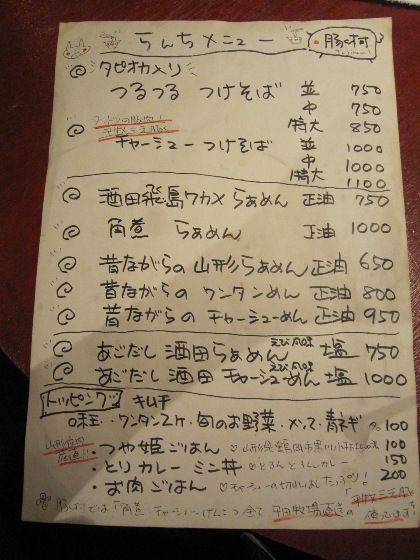 らんちメニュー
タピオカ入り
つるつる つけそば 並 750
中 750
特大 850
チャーシュー つけそば 並 1000
中 1000
特大 1100
酒田飛島ワカメ らぁめん 正油 750
角煮 らぁめん 正油 1000
昔ながらの 山形らぁめん 正油 650
昔ながらの ワンタンめん 正油 800
昔ながらの チャーシューめん 正油 950
あごだし 酒田らぁめん えび風味 塩 750
あごだし 酒田 チャーシューめん えび風味 塩 1000
トッピング キムチ
味玉・ワンタン2ケ・旬のお野菜・メンマ・青ネギ 各100
・つや姫ごはん 100
・とり カレー ミニ丼 とろとろカレー 150
・お肉ごはん 200
では「角煮・チャーシュー・げんこつ全て 平田牧場直送の